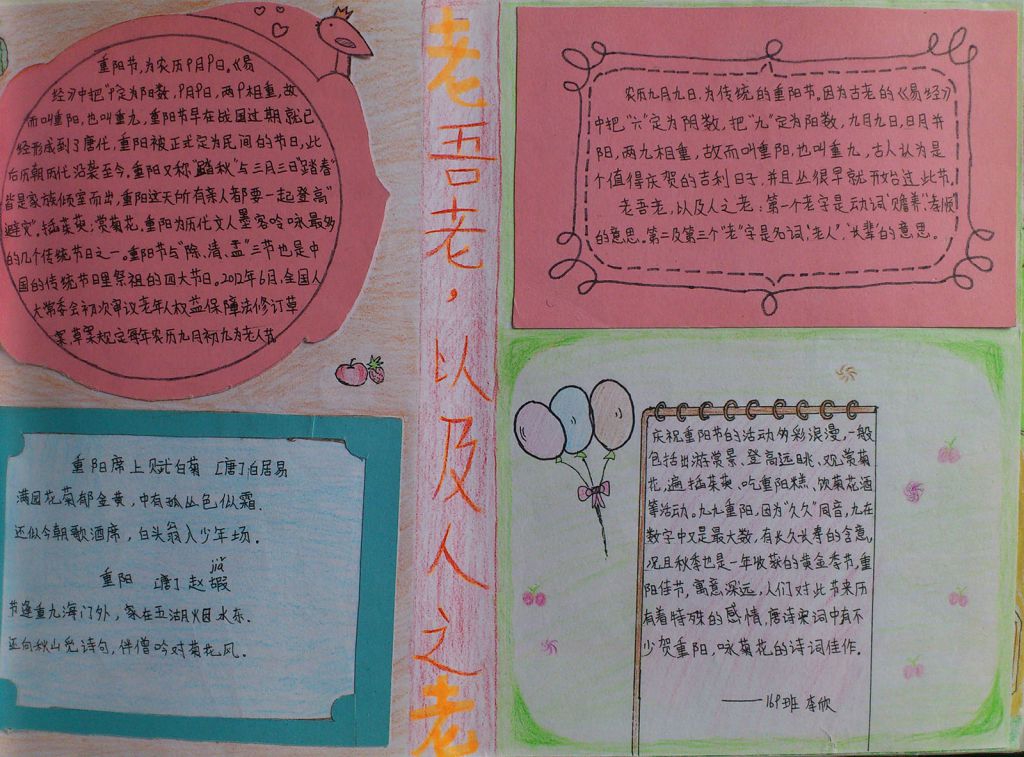 重阳节,为农历9月9日。《易
经》中把“9”定为阳数,9月9日,两9相重,故
而叫重阳,也叫重九,重阳节早在战国过期就已
经形成到了唐代,重阳被正式定为民间的节日,此
后历朝历代沿袭至今。重阳又称“踏秋”与三月三日“踏春”
皆是家族倾室而出,重阳这天所有亲人都要一起登高“
避灾”。插茱萸,赏菊花,重阳为历代文人墨客吟咏最多
的几个传统节日之一。重阳节与“除、清、盂”三节也是中
国的传统节日里祭祖的四大节日。2012年6月,全国人
大常委会初次审议老年人权益保障法修订草
案,草案规定每年农历九月初九为老人节
重阳席上赋白菊 [唐]白居易
满园花菊郁金黄,中有孤丛色似霜.
还似今朝歌酒席,白头翁入少年场.
jiǎ
重阳 [唐] 赵嘏
节逢重九海门外,家在五湖烟水东.
还向秋山觅诗句,伴僧吟对菊花风.
老吾老,以及人之老
农历九月九日,为传统的重阳节。因为古老的《易经》
中把“六”定为阴数,把“九”定为阳数,九月九日,日月并
阳,两九相重,故而叫重阳,也叫重九,古人认为是
个值得庆贺的吉利日子,并且从很早就开始过此节。
老吾老,以及人之老:第一个老字是动词“赡养”,“孝顺”
的意思。第二及第三个“老”字是名词,“老人”,“长辈”的意思。
庆祝重阳节的活动多彩浪漫,一般
包括出游赏景、登高远眺、观赏菊
花,遍插茱萸、吃重阳糕、饮菊花酒
等活动。九九重阳,因为“久久”同音,九在
数字中又是最大数,有长久长寿的含意,
况且秋季也是一年收获的黄金季节,重
阳佳节,寓意深远,人们对此节来历
有着特殊的感情,唐诗宋词中有不
少贺重阳,咏菊花的诗词佳作.
——169班 李欣